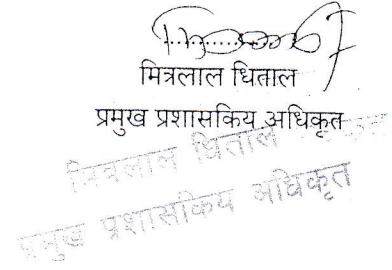 मित्रलाल धिताल
प्रमुख प्रशासकिय अधिकृत
मित्रलाल धिताल
प्रमुख प्रशासकिय अधिकृत